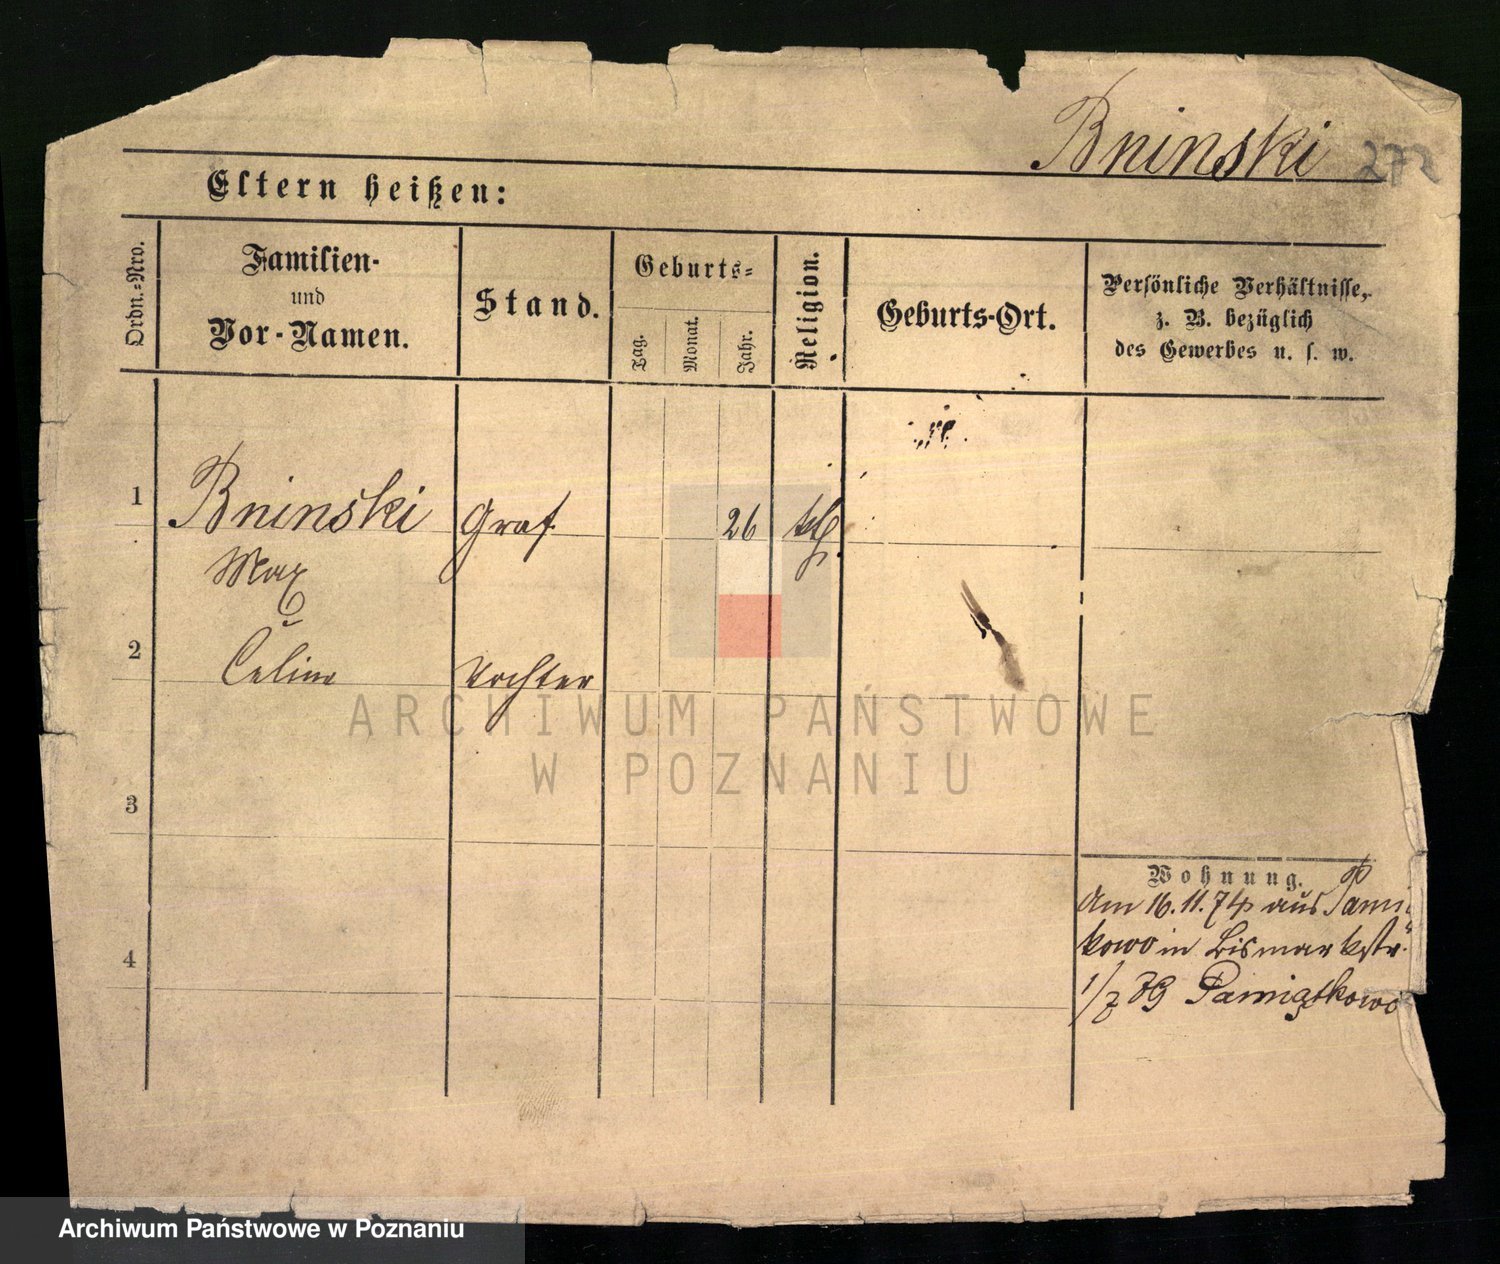 Bninski 272
Eltern heißen:
Ordn.-Nro.
Familien-
und
Vor-Namen.
Stand.
Geburts-
Tag.
Monat.
Jahr.
Religion.
Geburts-Ort.
Persönliche Verhältnisse,
z. B. bezüglich
des Gewerbes u. s. w.
1 Bninski Graf 26 kth.
Max
2 Celina Tochter
3
4
Wohnung.
Am 16.11.74 aus Pami
kowo in Bismarkstr.
1/7 Pamiątkowo
ARCHIWUM PAŃSTWOWE
W POZNANIU
Archiwum Państwowe w Poznaniu